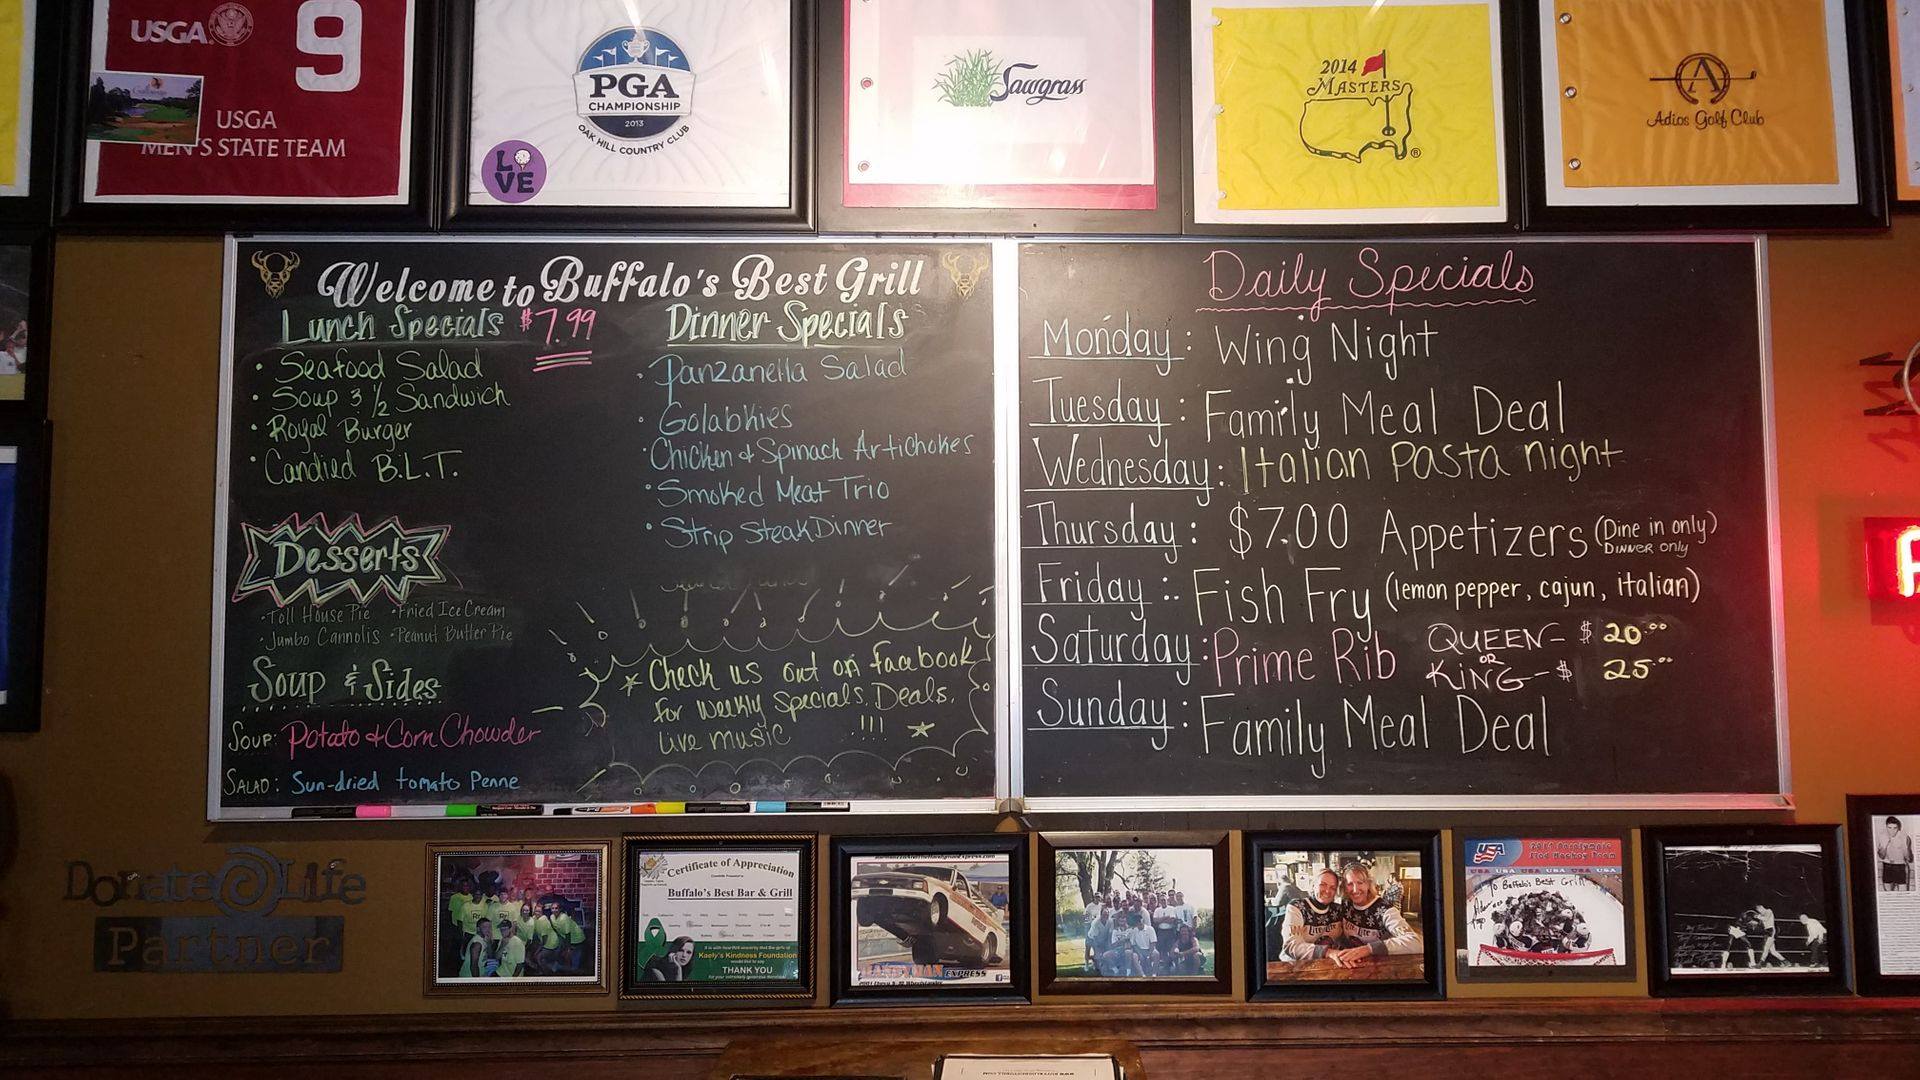 USGA
9
USGA
MEN'S STATE TEAM
PGA
CHAMPIONSHIP
2013
OAK HILL COUNTRY CLUB
LOVE
Sawgrass
2014
MASTERS
®
A
Adios Golf Club
Welcome to Buffalo's Best Grill
Lunch Specials $7.99
• Seafood Salad
• Soup & ½ Sandwich
• Royal Burger
• Candied B.L.T.
Dinner Specials
• Panzanella Salad
• Golabkies
• Chicken & Spinach Artichokes
• Smoked Meat Trio
• Strip Steak Dinner
Desserts
• Toll House Pie • Fried Ice Cream
• Jumbo Cannolis • Peanut Butter Pie
Soup & Sides
Soup: Potato & Corn Chowder
Salad: Sun-dried tomato Penne
Check us out on facebook
for weekly specials, Deals,
live music !!!
Daily Specials
Monday: Wing Night
Tuesday: Family Meal Deal
Wednesday: Italian Pasta night
Thursday: $7.00 Appetizers (Dine in only)
Dinner only
Friday: Fish Fry (lemon pepper, cajun, italian)
Saturday: Prime Rib QUEEN- $20.00
OR
KING- $25.00
Sunday: Family Meal Deal
Donate Life
Partner
Certificate of Appreciation
Buffalo's Best Bar & Grill
Kaely's Kindness Foundation
THANK YOU
EXPRESS
USA
2014 Paralympic
Sled Hockey Team
USA USA USA USA USA
To Buffalo's Best Grill